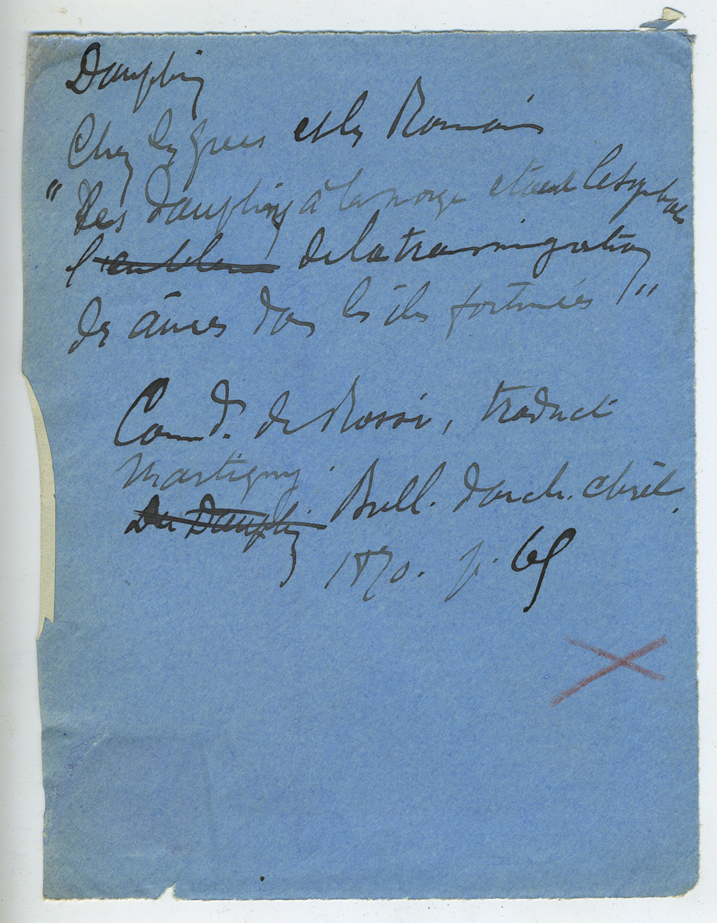 Dauphin
Chez les Grecs et les Romains
"Les dauphins à la nage étaient le symbole
l'emblème de la transmigration
des âmes dans les îles fortunées !"
Comd. de Rossi, traduct
Martigny.
Du Dauphin Bull. d'arch. chrét.
1870. p. 65